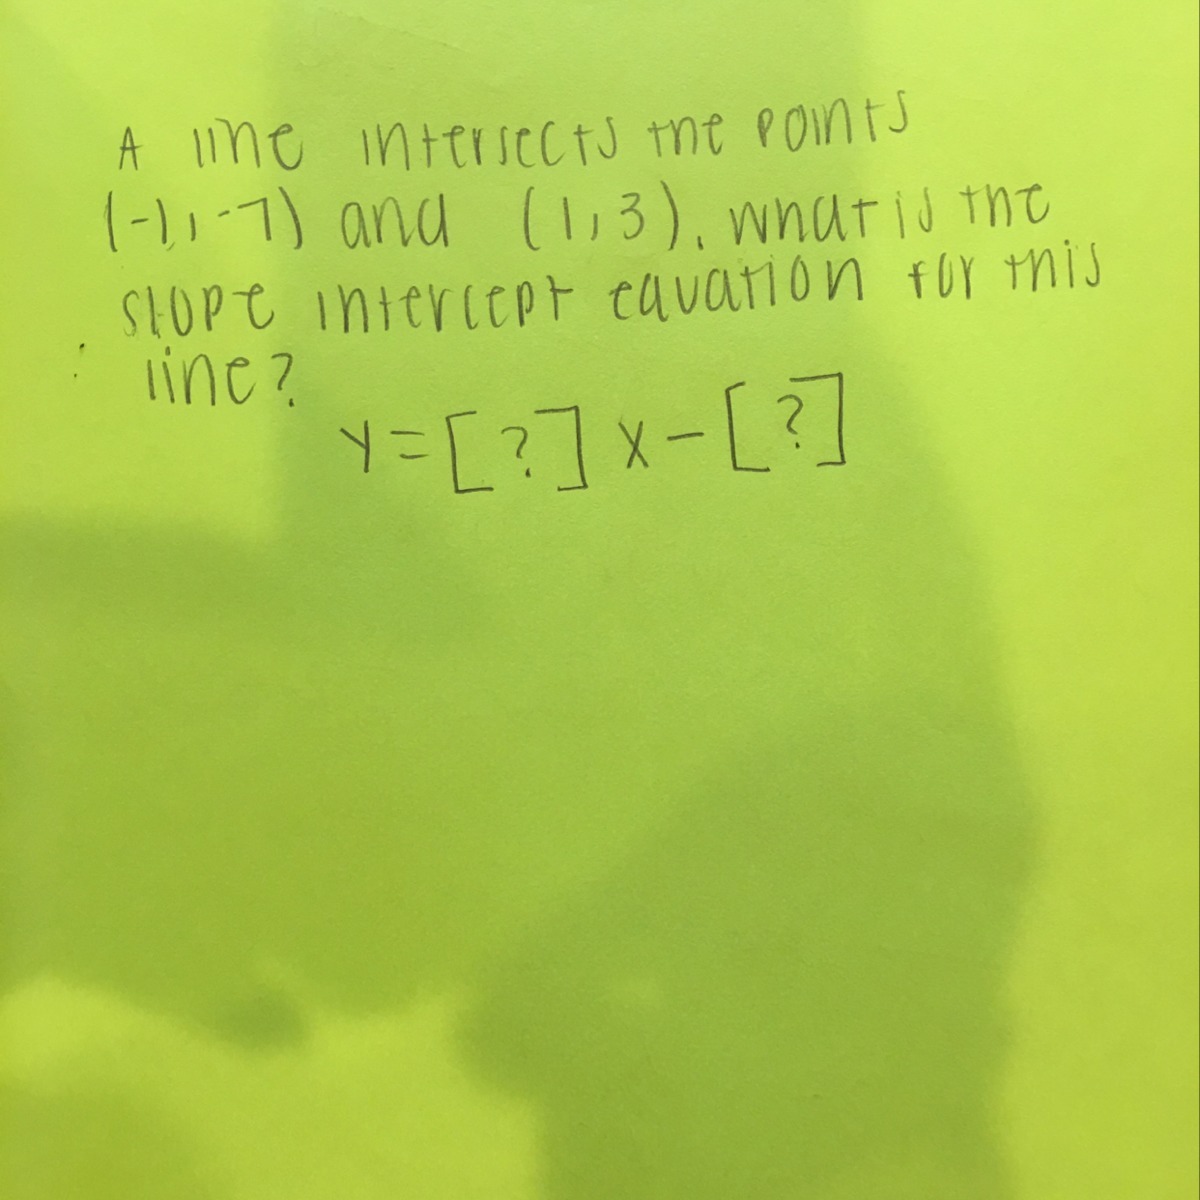 A line intersects the points
(-1, -7) and (1,3). What is the
slope intercept equation for this
line?
y = [?] x - [?]